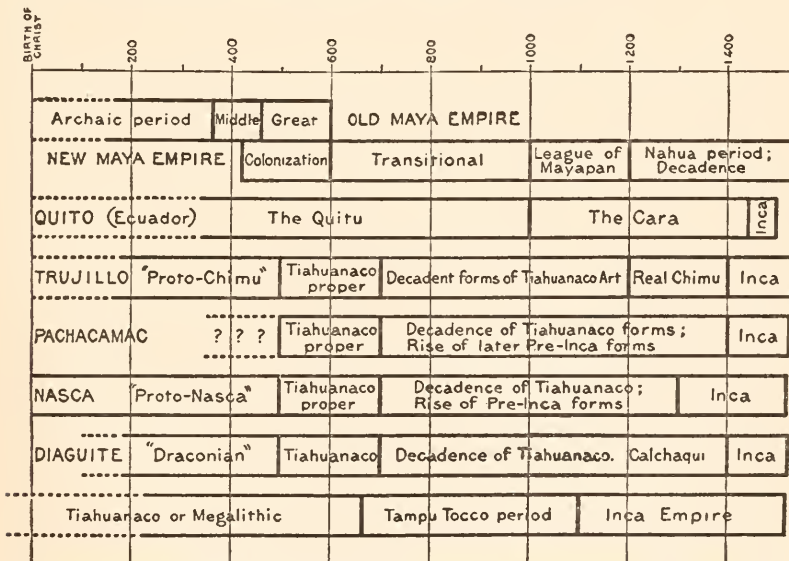 BIRTH OF
CHRIST
200
400
600
800
1000
1200
1400
Archaic period Middle Great OLD MAYA EMPIRE
NEW MAYA EMPIRE Colonization Transitional League of
Mayapan Nahua period;
Decadence
QUITO (Ecuador) The Quitu The Cara Inca
TRUJILLO "Proto-Chimu" Tiahuanaco
proper Decadent forms of Tiahuanaco Art Real Chimu Inca
PACHACAMAC ? ? ? Tiahuanaco
proper Decadence of Tiahuanaco forms;
Rise of later Pre-Inca forms Inca
NASCA "Proto-Nasca" Tiahuanaco
proper Decadence of Tiahuanaco;
Rise of Pre-Inca forms Inca
DIAGUITE "Draconian" Tiahuanaco Decadence of Tiahuanaco. Calchaqui Inca
Tiahuanaco or Megalithic Tampu Tocco period Inca Empire